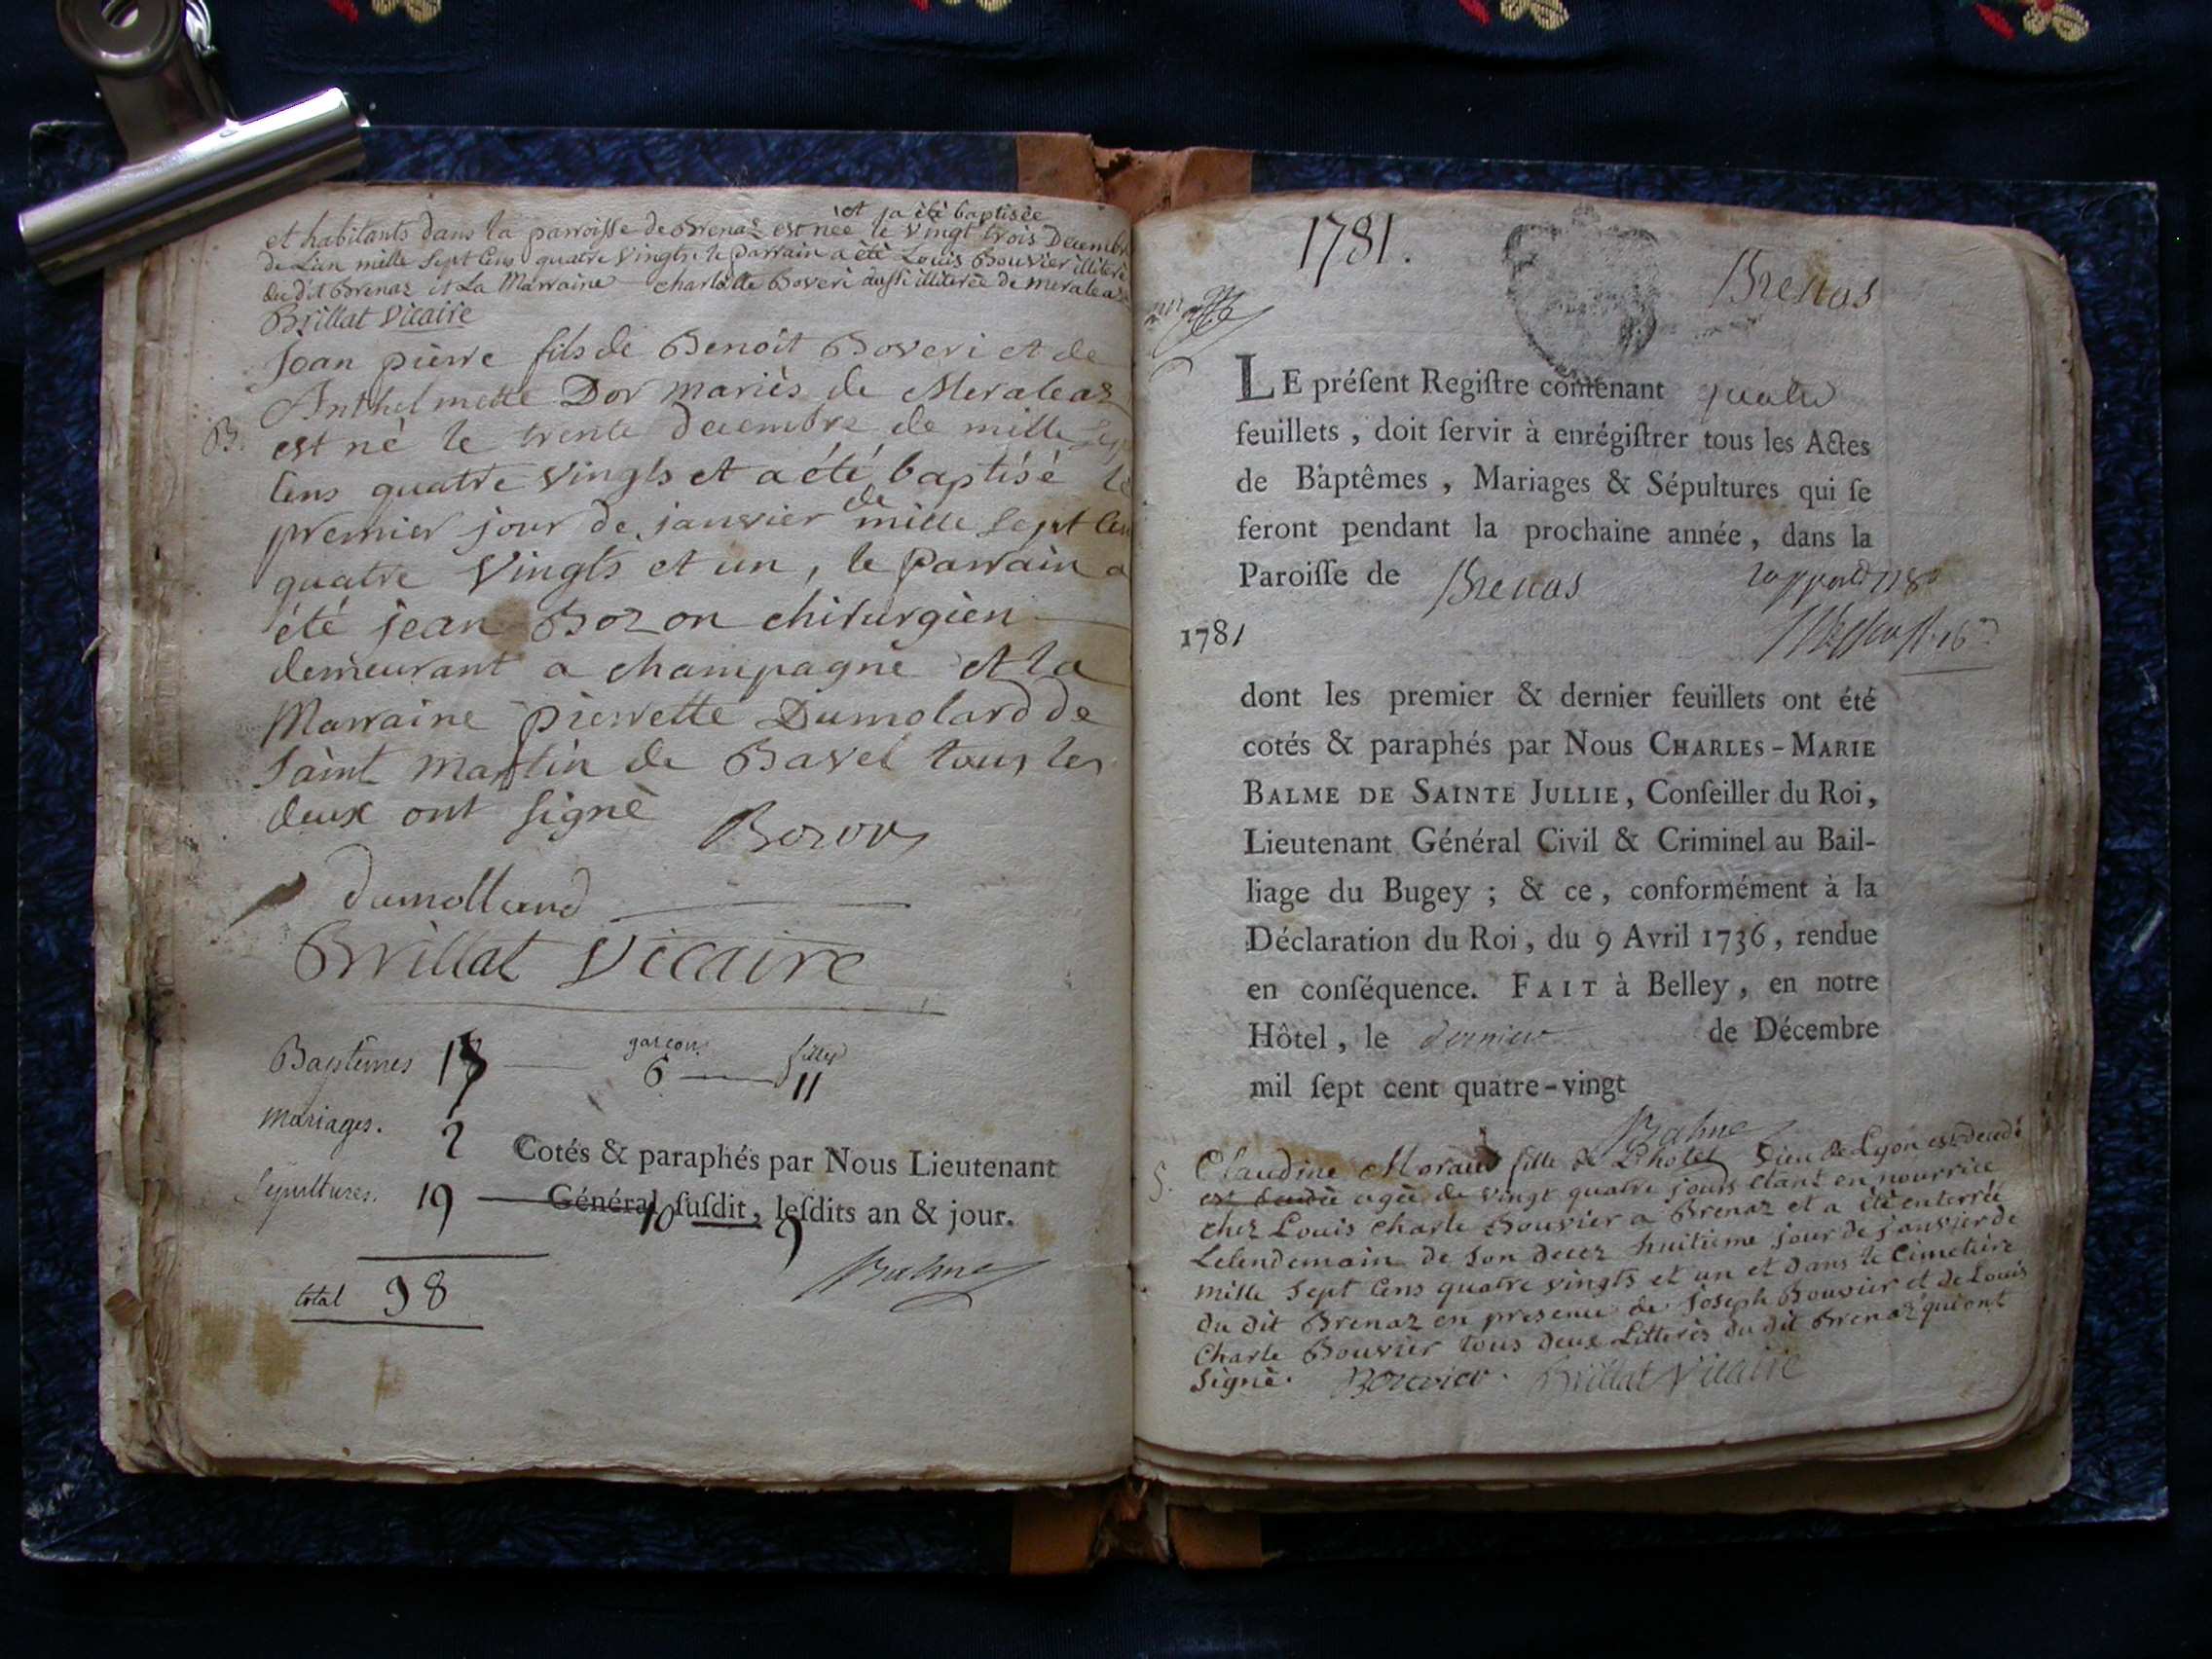 et a été baptisée
et habitants dans la parroisse de Brenaz est née le vingt trois Decembre
de L'an mille sept cens quatre vingts le parrain a été Louis Bouvier illiteré
du dit Brenaz et La Marraine charlotte Boveri aussi illiterée de meraleaz
Brillat vicaire
Joan pierre fils de Benoît Boveri et de
Anthelmette Dor mariés de Meraleaz
B. est né le trente decembre de mille sept
cens quatre vingts et a été baptisé le
premier jour de janvier de mille sept cen
quatre vingts et un, le parrain a
été jean Bozon chirurgien
demeurant a champagne et la
Marraine pierrette Dumolard de
saint martin de Bavel tous les
deux ont signé
Bozon
dumollard
Brillat vicaire
Baptêmes 17 garçons 6 filles 11
mariages. 2
Sepultures. 19 10 9
Cotés & paraphés par Nous Lieutenant
Général suſdit, leſdits an & jour.
Balme
total 38
1781.
Brenas
LE préſent Regiſtre contenant quatre
feuillets, doit ſervir à enrégiſtrer tous les Actes
de Baptêmes, Mariages & Sépultures qui ſe
feront pendant la prochaine année, dans la
Paroiſſe de Brenas
1781
dont les premier & dernier feuillets ont été
cotés & paraphés par Nous CHARLES-MARIE
BALME DE SAINTE JULLIE, Conſeiller du Roi,
Lieutenant Général Civil & Criminel au Bail-
liage du Bugey ; & ce, conformément à la
Déclaration du Roi, du 9 Avril 1736, rendue
en conſéquence. FAIT à Belley, en notre
Hôtel, le dernier de Décembre
mil ſept cent quatre-vingt
Balme
S. Claudine Moraud fille de L'hotel Dieu de Lyon est decedé
agée de vingt quatre jours etant en nourrice
chez Louis charle Bouvier a Brenaz et a été enterrée
Lelendemain de son decez huitieme jour de janvier de
mille sept cens quatre vingts et un et dans le cimetiere
du dit Brenaz en presence de joseph Bouvier et de Louis
charle Bouvier tous deux Litterés du dit Brenaz qui ont
signé. Bouvier. Brillat Vicaire